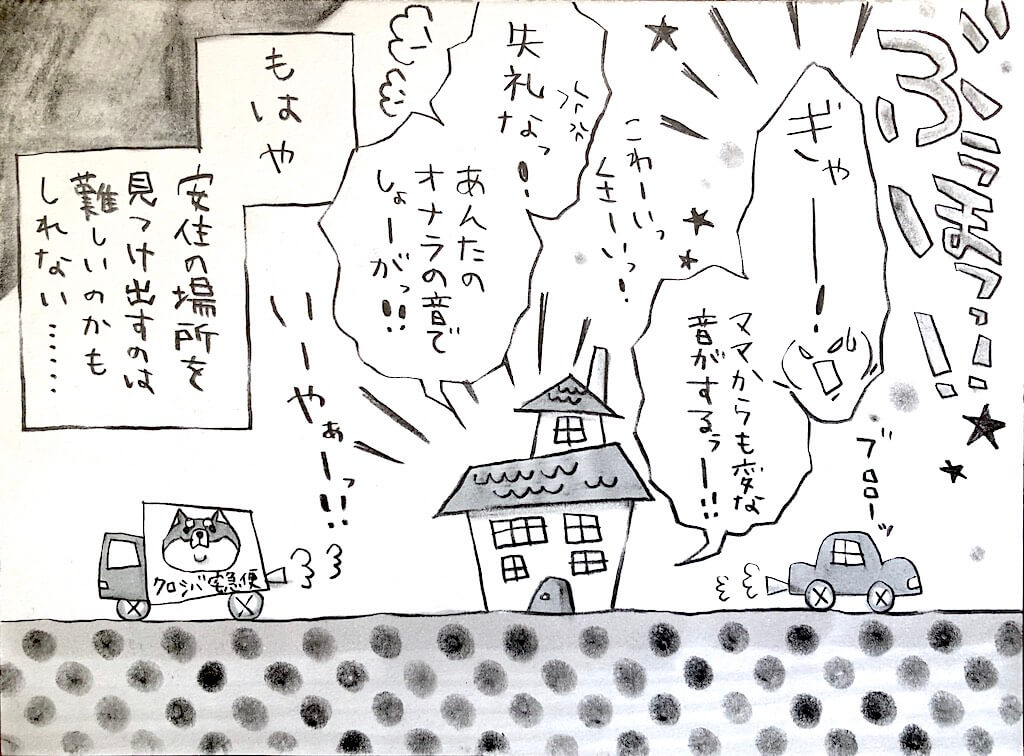 ぶぅぼっ…!!
ぎゃーー!
ママからも変な
音がするぅー!!
ブロロー
こわーいっ
くさーいっ!
失礼なっ!
あんたの
オナラの音で
しょーがっ!!
いーやぁーっ!!
もはや
安住の場所を
見つけ出すのは
難しいのかも
しれない……
クロシバ宅急便